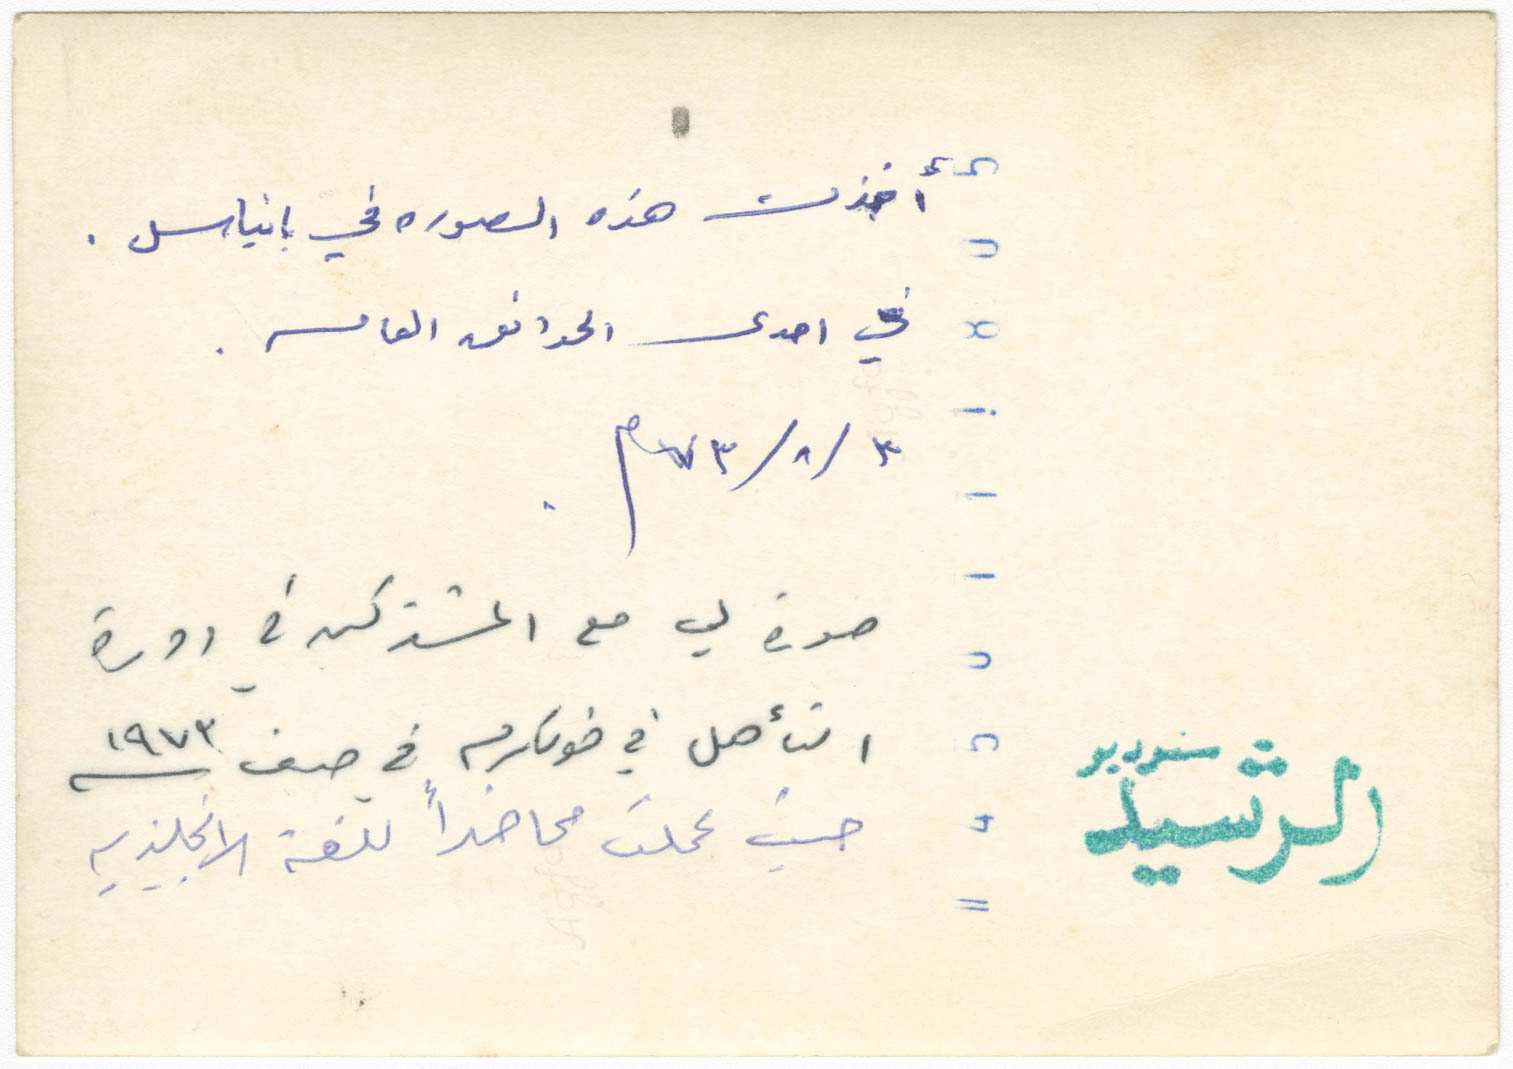 أخذت هذه الصوره في بانياس .
في احدى الحدائق العامه .
٣ / ٨ / ٧٣ م .
صورة لي مع المشتركين في دورة
التأهل في في صيف ١٩٧٣
حيث عملت محاضراً للغة الانجليزيه
ستوديو
الرشيد